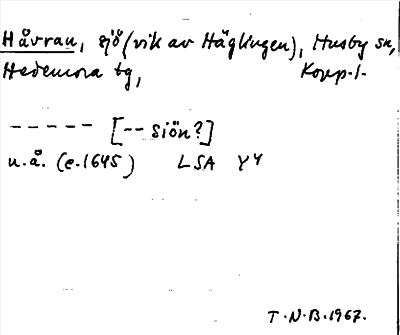 Håvran, sjö (vik av Häglingen), Husby sn,
Hedemora tg, Kopp. l.
----- [-- siön?]
u. å. (e. 1645) LSA Y4
T.N.B. 1967.